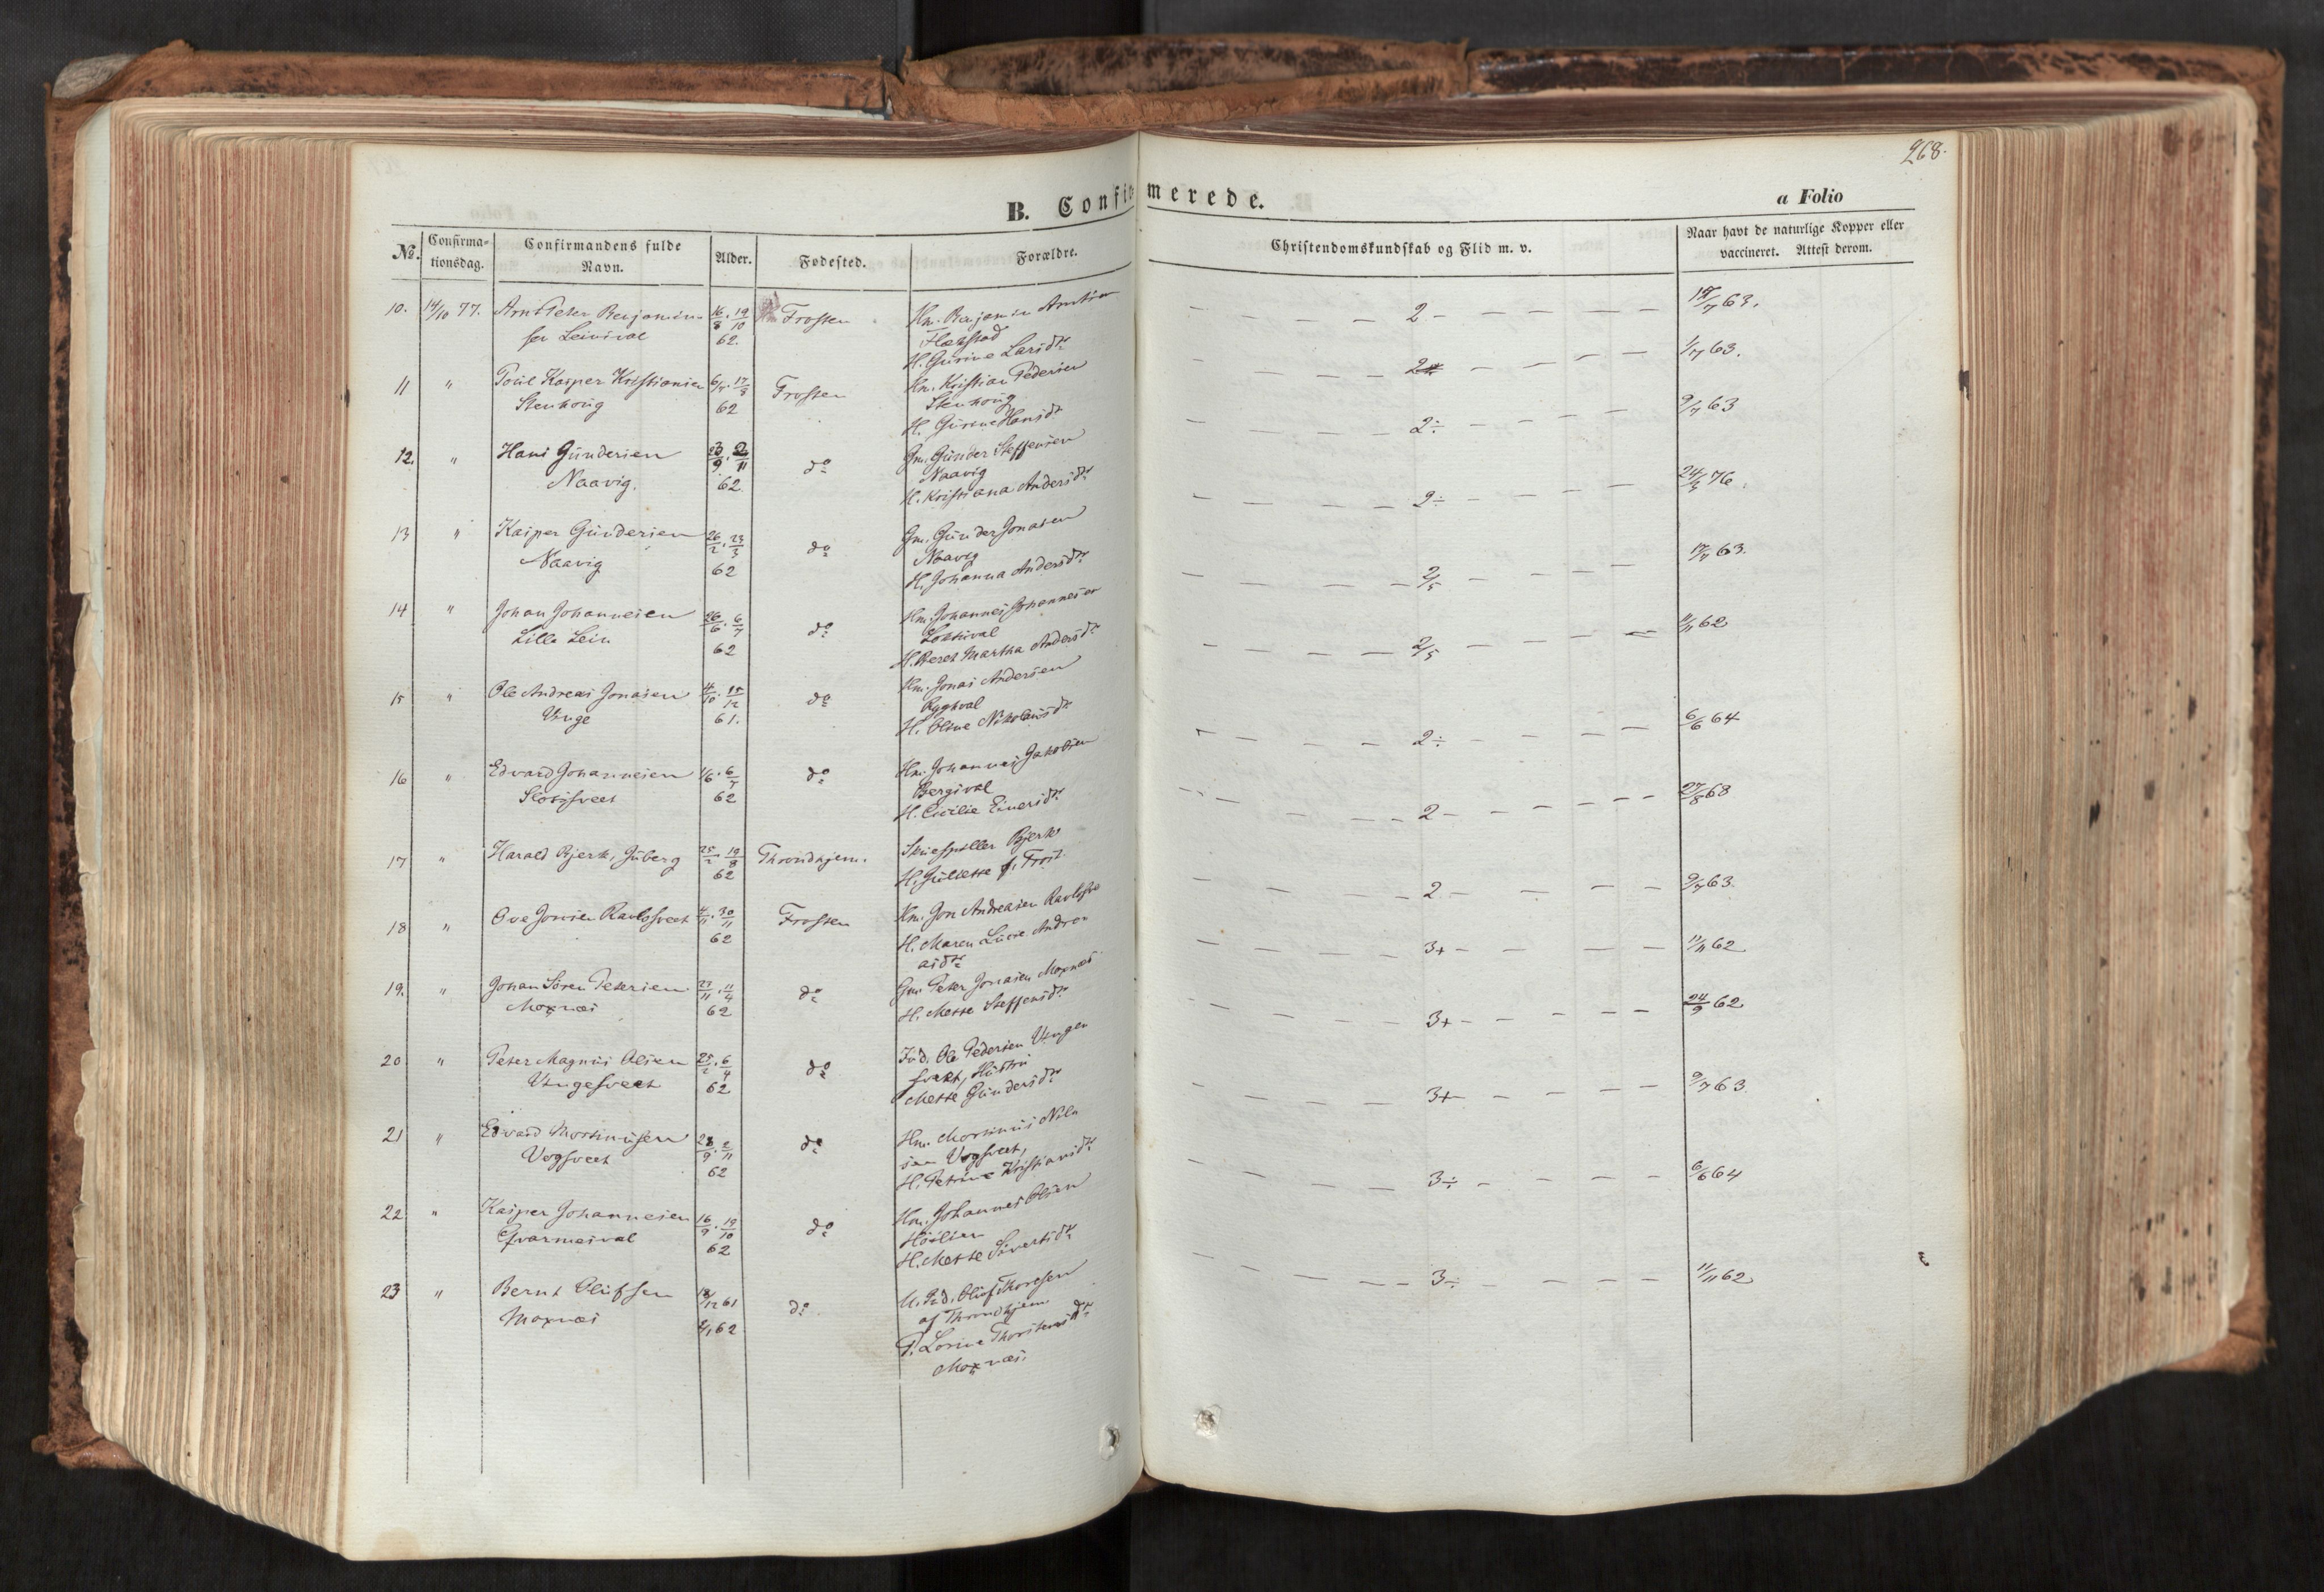 268.
B. Confirmerede.
a Folio
No. Confirma-tionsdag. Confirmandens fulde Navn. Alder. Fødested. Forældre. Christendomskundskab og Flid m. v. Naar havt de naturlige Kopper eller vaccineret. Attest derom.
10. 14/10 77. Arnt Peter Benjamin- 16/8. 19/10 Frosten Hm. Benjamin 2 63.
sen 62.
H. Gurine Larsdtr
11 " Poul Kasper Kristiansen 17/3 Frosten Hm. Kristian Pedersen 2 1/7 63.
Stenhoug 62 Stenhoug
H. Hansdtr
12. " Hans Gundersen 23/9. 2/11 do Gm. Gunder Steffensen 2÷ 9/7 63
Naavig. 62 Naavig
H. Kristiana Andersdtr
13 " Kasper Gundersen 26/2. 23/3 do Gm. Gunder Jonasen 2÷ 76.
Naavig 62 Naavig
H. Johanna Andersdtr
14 " Johan Johannesen 26/6. 6/7 do Hm. Johannes Johannesen 2/5 63.
Lille Lein 62
H. Beret Martha Andersdtr
15 " Ole Andreas Jonasen 4/10. 15/12 do Hm. Jonas Andersen 2/5 11/11 62
Vinge 61.
H. Oline Nikolausdtr
16 " Edvard Johannesen 1/6. 6/7 do Hm. Johannes Jakobsen 2÷ 6/6 64
62 Bergsval
H. Einersdtr
17 " Harald Bjerk, Juberg 25/2. 19/8 Throndhjem. Skuespiller Bjerk 2 27/8 68
62 H. Juliette f. Frost
18 " Ove Jonsen 4/11. 30/11 Frosten Hm. Jon Andreasen 2 9/7 63.
62 H. Maren Andre
asdtr
19. " Johan Sören Petersen 27/11. 11/4 do Gm. Peter Jonasen Moxnæs 3+ 11/11 62
Moxnæs 62 H. Mette Steffensdtr
20 " Peter Magnus Olsen 25/2. 6/4 do Ind. Ole Pedersen 3+ 24/9 62
62 Hustru
Mette Gundersdtr
21 " Edvard Mortinusen 28/9. 2/11 do Hm. Mortinus Niel 3+ 9/7 63
Vogsveet 62 sen Vogsveet,
H. Petrine Kristiansdtr
22 " Kasper Johannesen 16/9. 19/10 do Hm. Johannes Olsen 3÷ 6/6 64
62
H. Mette Sivertsdtr
23 " Bernt Olufsen 18/12 61 do U. Oluf Thoresen 3÷ 11/11 62
Moxnæs 62 af Throndhjem
P. Lorine
Moxnæs.